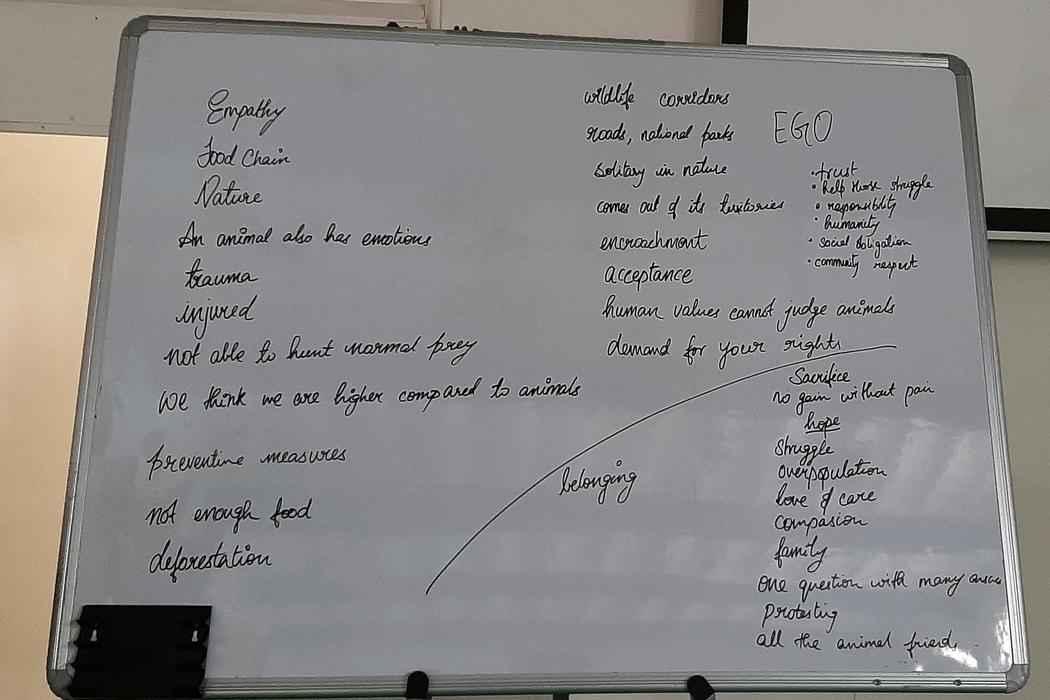 Empathy
Food Chain
Nature
An animal also has emotions
trauma
injured
not able to hunt normal prey
We think we are higher compared to animals
preventive measures
not enough food
deforestation
wildlife corridors
roads, national parks
solitary in nature
comes out of its territories
encroachment
acceptance
human values cannot judge animals
demand for your rights
EGO
• trust
• help those struggle
• responsibility
• humanity
• social obligation
• community respect
belonging
Sacrifice
no gain without pain
hope
struggle
overpopulation
love & care
compasion
family
One question with many
Protesting
all the animal friends